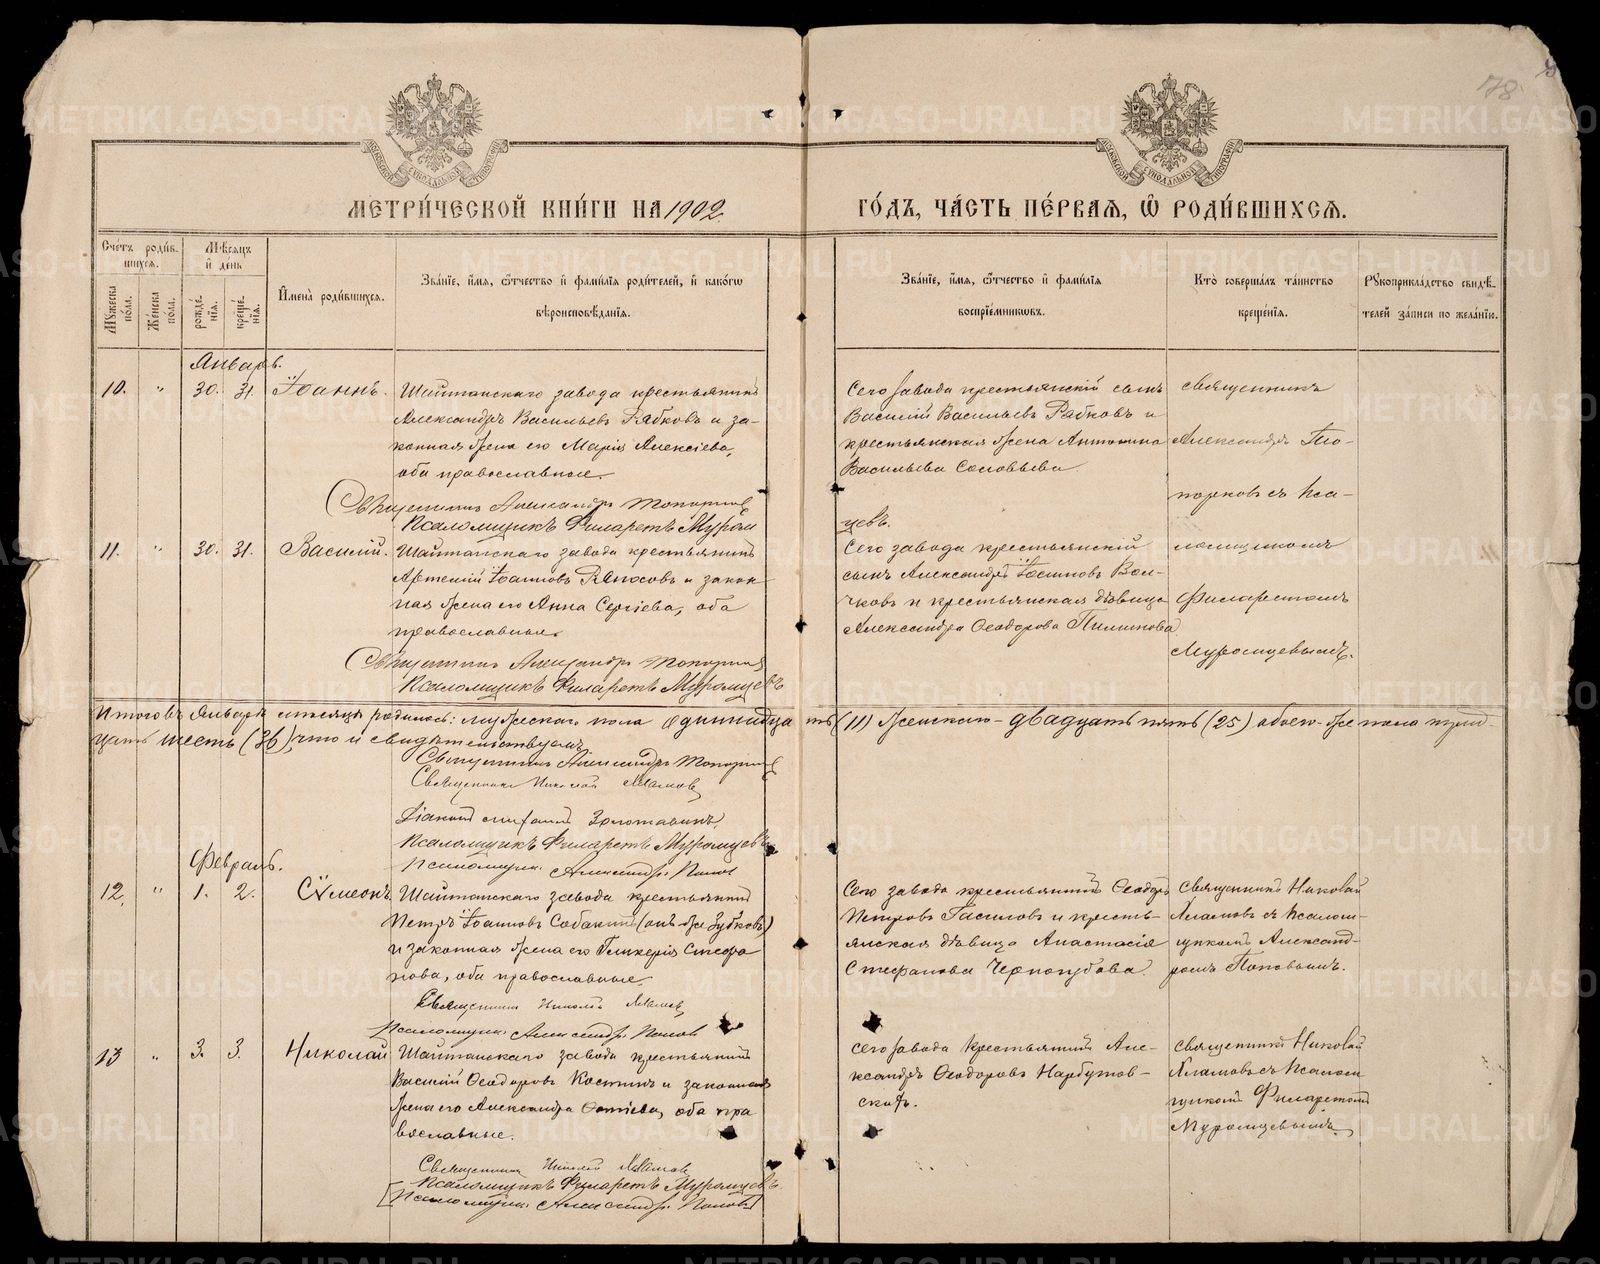 78
МЕТРИ́ЧЕСКОЙ КНИ́ГИ НА 1902
ГО́ДЪ, ЧА́СТЬ ПЕ́РВАЯ, Ѽ РОДИ́ВШИХСЯ.
Сче́тъ роди́в-
шихся.
Мѣсяцъ
и день
Мужеска
по́ла.
Же́нска
пола.
рожде́-
нїя.
креще́-
нїя.
Имена̀ роди́вшихся.
Зва́нїе, и́мя, ѻ҆́тчество и фами́лїя роди́телей, и како́гѡ
вѣроисповѣ́данїя.
Зва́нїе, и́мя, ѻ҆́тчество и фами́лїя
воспрїе́мниковъ.
Кто̀ соверша́лъ та́инство
креще́нїя.
Рукоприкла́дство свидѣ́-
телей за́писи по жела́нїю.
Январь.
10. " 30. 31. Іоаннъ.
Шайтанскаго завода крестьянинъ
Александръ Васильевъ Рябковъ и за-
конная жена его Марія Алексіева,
оба православные.
Священникъ Александръ Топорковъ
Псаломщикъ Филаретъ Муром
Сего завода крестьянскій сынъ
Василій Васильевъ Рябковъ и
крестьянская жена Антонина
Васильева Соловьева
цевъ.
священникъ
Александръ То-
порковъ съ Пса-
ломщикомъ
Филаретомъ
Муромцевымъ.
11. " 30. 31. Василій.
Шайтанскаго завода крестьянинъ
Артемій Іоанновъ и закон-
ная жена его Анна Сергіева, оба
православные.
Священникъ Александръ Топорковъ
Псаломщикъ Филаретъ Муромцевъ
Сего завода крестьянскій
сынъ Александръ Вол-
чковъ и крестьянская дѣвица
Александра Ѳеодорова
Итого въ Январѣ мѣсяцѣ родилось: мужескаго пола одиннадцать (11) женскаго - двадцать пять (25) обоего-же пола трид-
цать шесть (36), что и свидѣтельствуемъ.
Священникъ Александръ Топорковъ
Священникъ Николай
Діаконъ Золотавинъ.
Псаломщикъ Филаретъ Муромцевъ
Псаломщикъ Александръ Поповъ
Февраль.
12. " 1. 2. Сѵмеонъ.
Шайтанскаго завода крестьянинъ
Петръ Іоанновъ Собакинъ (онъ-же Зубковъ)
и законная жена его Гликерія Стефа
нова, оба православные.
Священникъ Николай
Псаломщикъ Александръ Поповъ
Сего завода крестьянинъ Ѳеодоръ
Петровъ Гасиловъ и кресть-
янская дѣвица Анастасія
Стефанова Черногубова.
священникъ Николай
съ Псалом-
щикомъ Александ-
ромъ Поповымъ.
13 " 3. 3. Николай
Шайтанскаго завода крестьянинъ
Василій Ѳеодоровъ Костинъ и законная
жена его Александра Ѳотіева, оба пра
вославные.
Священникъ Николай
Псаломщикъ Филаретъ Муромцевъ.
[Псаломщикъ Александръ Поповъ]
сего завода крестьянинъ Але-
ксандръ Ѳеодоровъ Нарбутов-
скихъ.
священникъ Николай
съ Псалом
щикомъ Филаретомъ
Муромцевымъ.